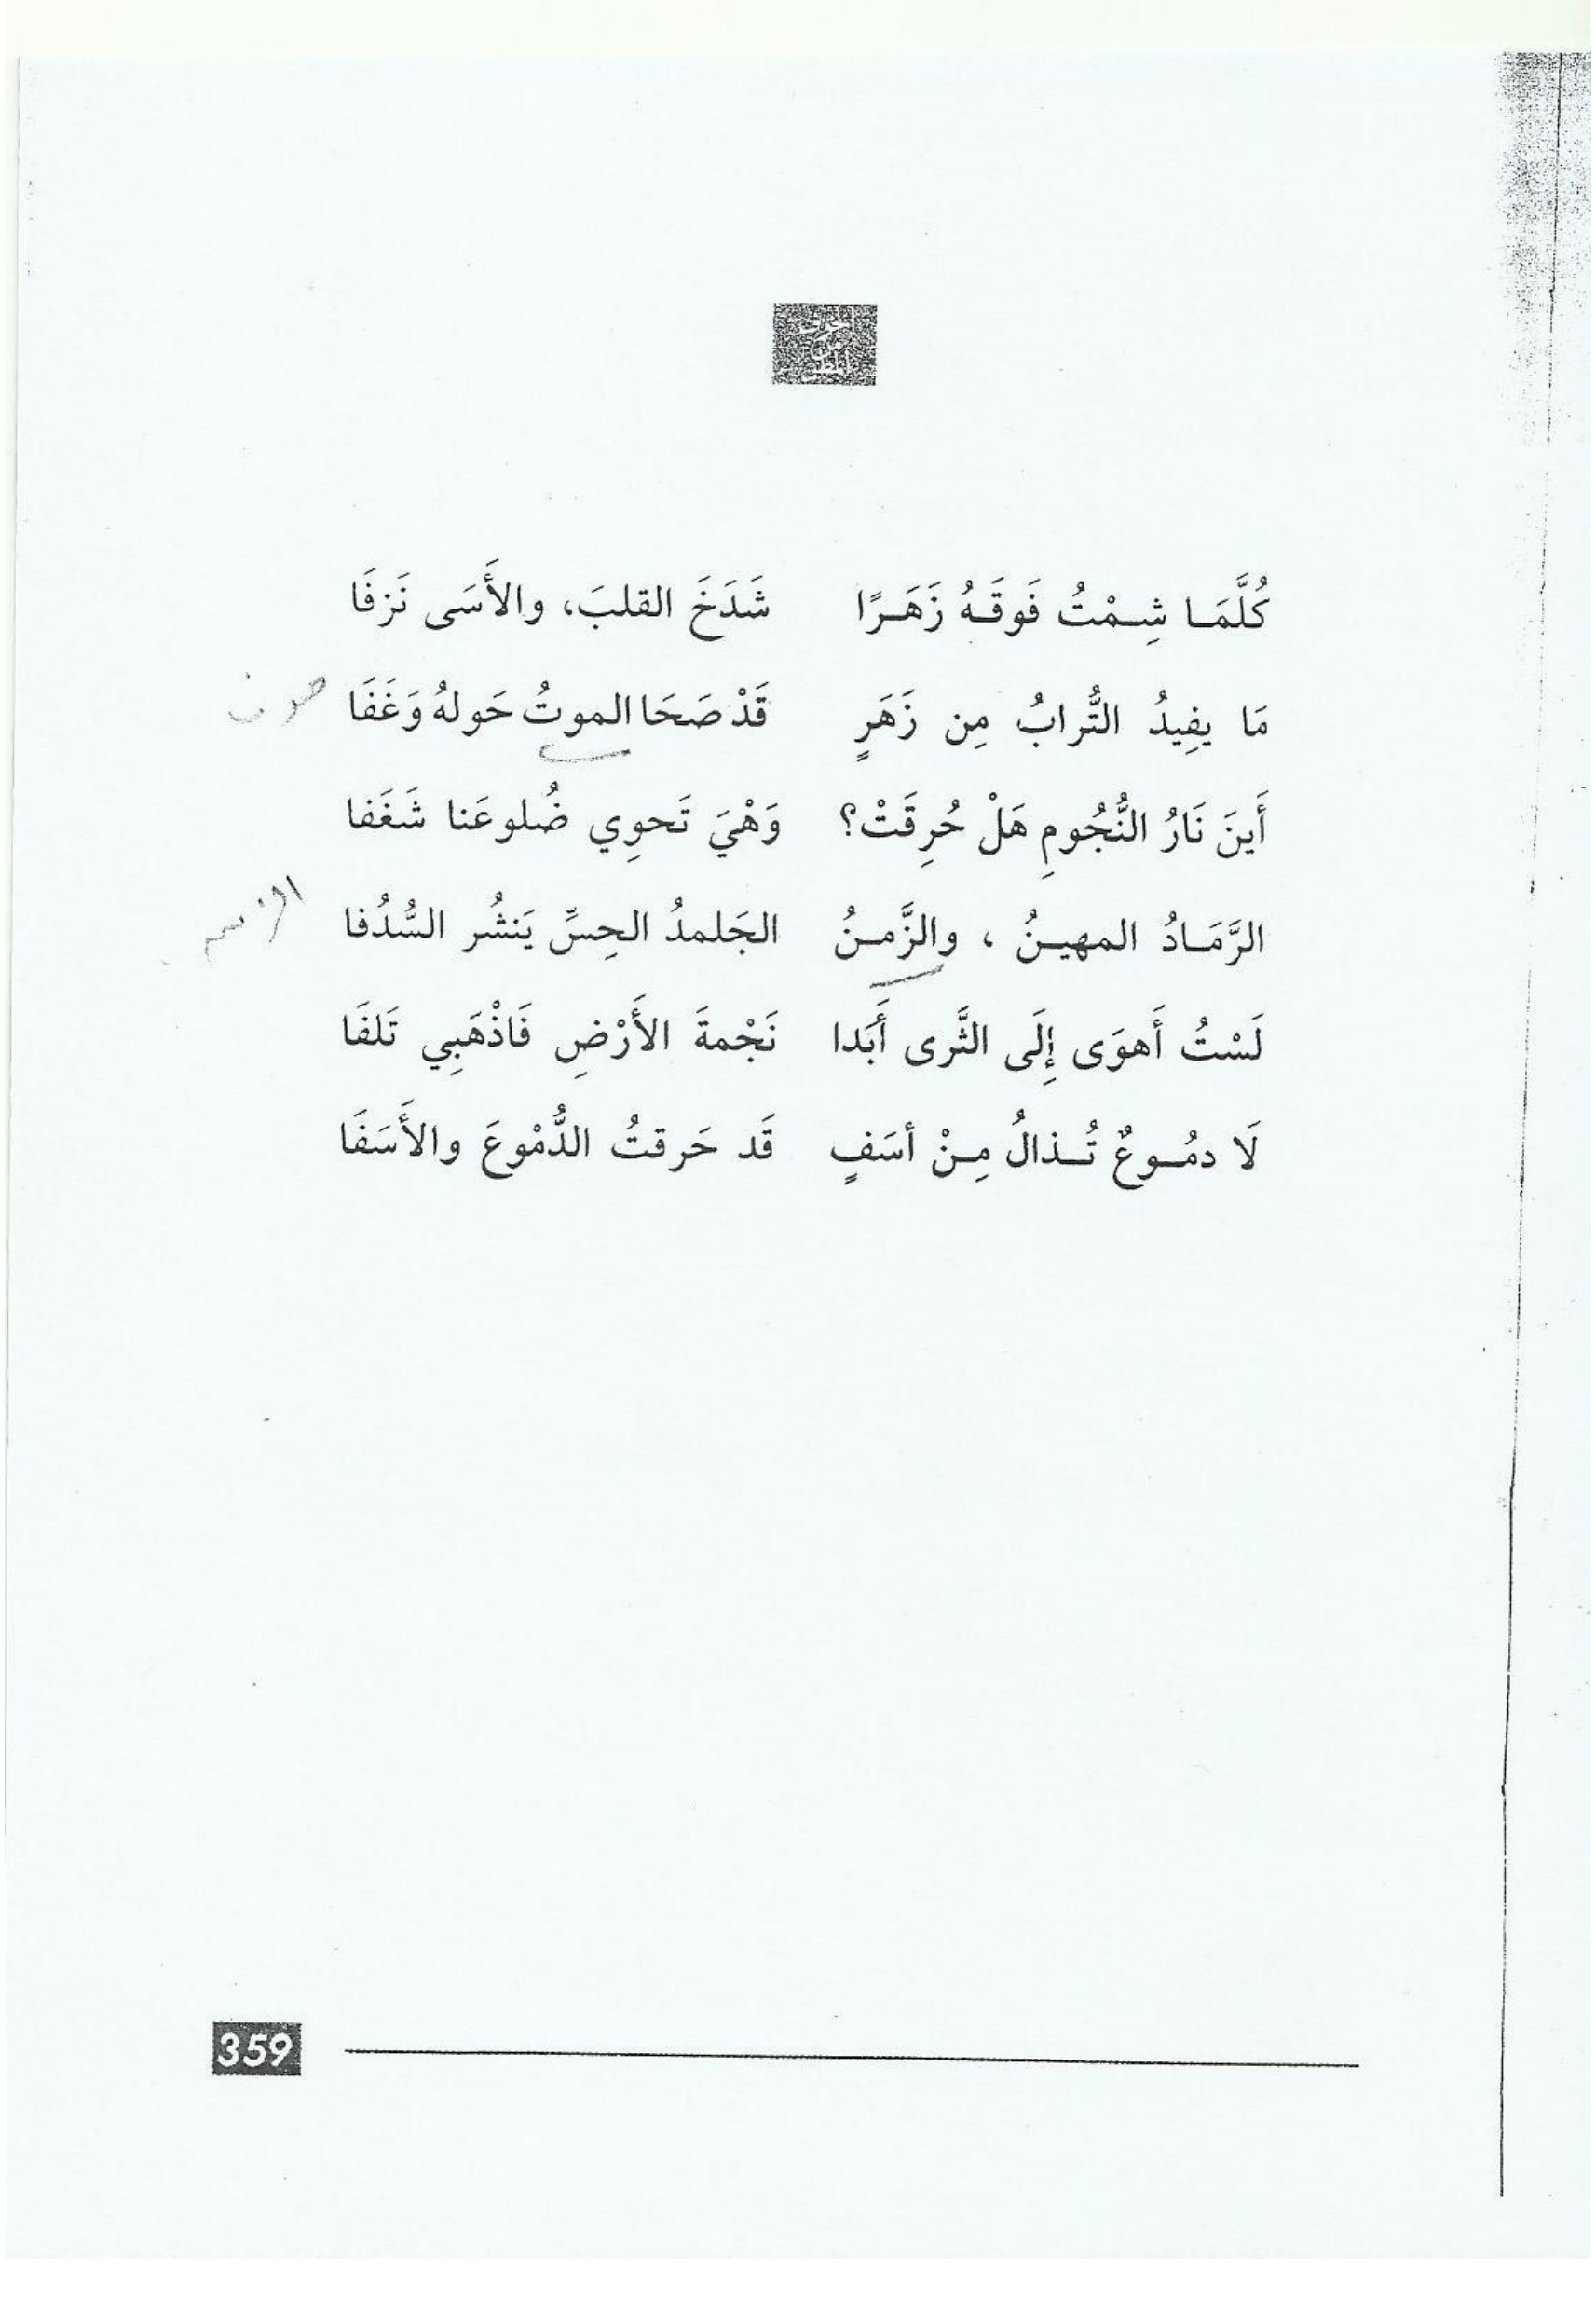 كُلَّمَـا شِـمْتُ فَوقَـهُ زَهَـرًا شَدَخَ القلبَ، والأَسَى نَزفَا
مَا يفِيدُ التُّرابُ مِن زَهَرٍ قَدْ صَحَا الموتُ حَولهُ وَغَفَا
أَينَ نَارُ النُّجُومِ هَلْ حُرِقَتْ؟ وَهْيَ تَحوِي ضُلوعَنا شَغَفا
الرَّمَـادُ المهيـنُ ، والزَّمـنُ الجَلمدُ الحِسِّ يَنشُر السُّدُفا
لَسْتُ أَهوَى إِلَى الثَّرى أَبَدا نَجْمةَ الأَرْضِ فَاذْهَبِي تَلفَا
لَا دمُـوعٌ تُـذالُ مِـنْ أسَفٍ قَد حَرقتُ الدُّمْوعَ والأَسَفَا
359